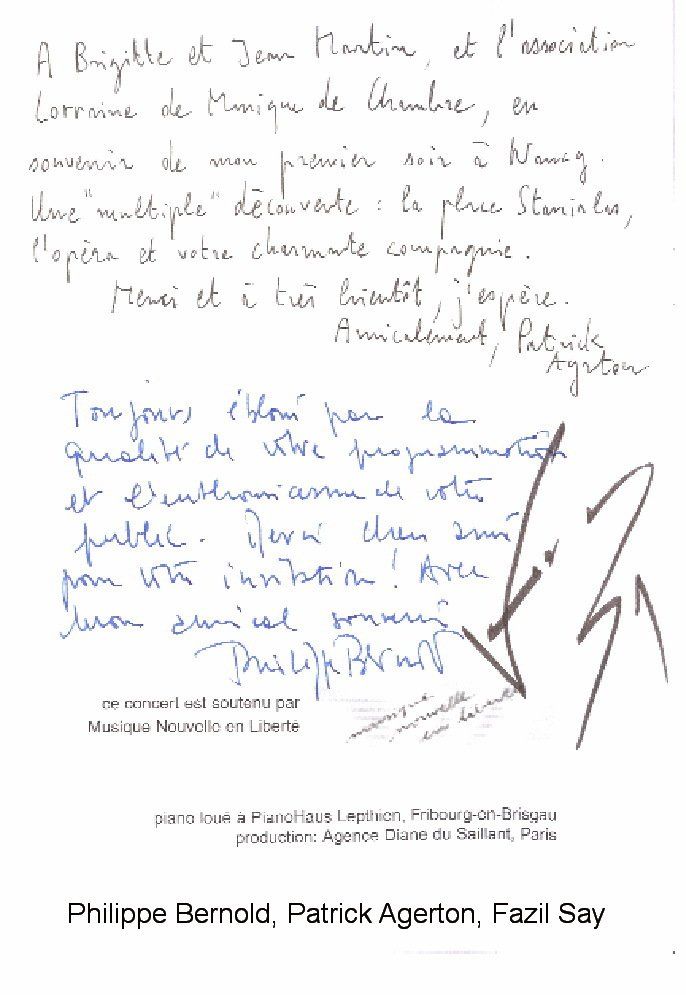 A Brigitte et Jean Martin, et l'association
Lorraine de Musique de Chambre, en
souvenir de mon premier soir à Nancy.
Une "multiple" découverte : la place Stanislas,
l'opéra et votre charmante compagnie.
Merci et à très bientôt, j'espère.
Amicalement, Patrick
Agerton
Toujours ébloui par la
qualité de votre programmation
et l'enthousiasme de votre
public. Merci cher ami
pour votre invitation ! Avec
mon amical souvenir
Philippe Bernold
ce concert est soutenu par
Musique Nouvelle en Liberté
musique
nouvelle
en liberté
piano loué à PianoHaus Lepthien, Fribourg-en-Brisgau
production: Agence Diane du Saillant, Paris
Philippe Bernold, Patrick Agerton, Fazil Say